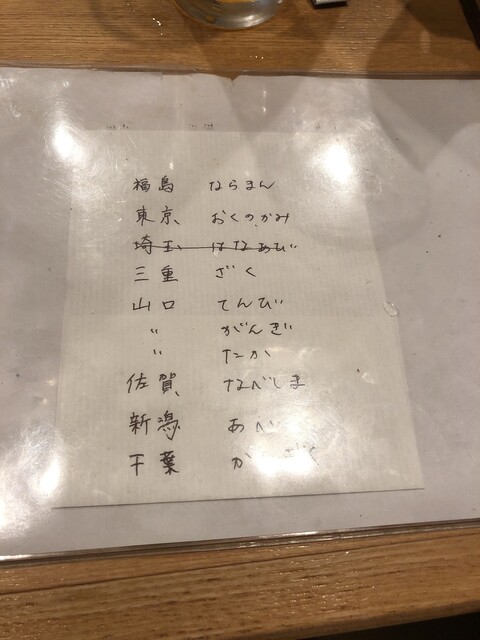 福島 ならまん
東京 おくのかみ
埼玉 はなあび
三重 ざく
山口 てんび
〃 がんぎ
〃 たか
佐賀 なべしま
新潟 あべ
千葉